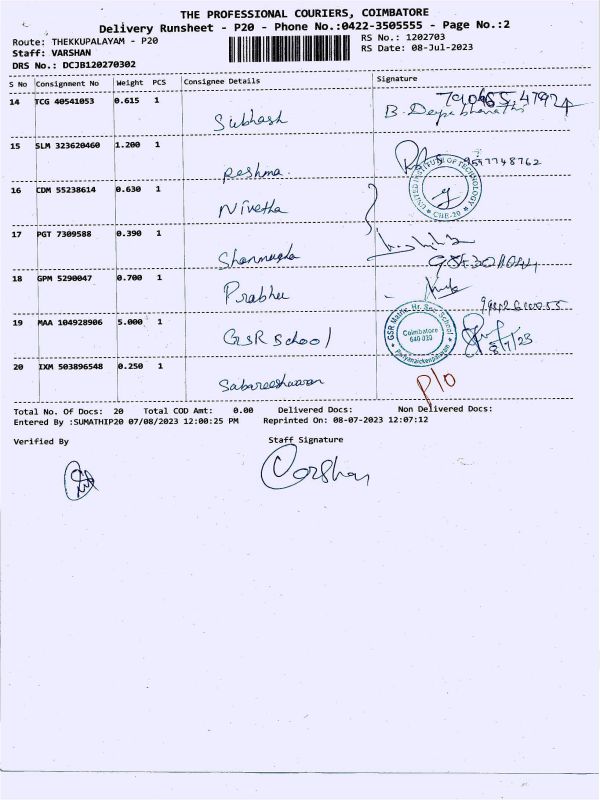 THE PROFESSIONAL COURIERS, COIMBATORE
Delivery Runsheet - P20 - Phone No.:0422-3505555 - Page No.:2
Route: THEKKUPALAYAM - P20 RS No.: 1202703
Staff: VARSHAN RS Date: 08-Jul-2023
DRS No.: DCJB120270302
S No Consignment No Weight PCS Consignee Details Signature
14 TCG 40541053 0.615 1 Subhash
15 SLM 323620460 1.200 1 Reshma 9597748762
UNITED INSTITUTE OF TECHNOLOGY
CBE-20
16 CDM 55238614 0.630 1 Nivetha
17 PGT 7309588 0.390 1 Shanmugha
18 GPM 5290047 0.700 1 Prabhu
19 MAA 104928906 5.000 1 GSR School
GSR Matric. Hr. Sec. School
Coimbatore
640 020
8/7/23
20 IXM 503896548 0.250 1 Sabareeshwaran P/o
Total No. Of Docs: 20 Total COD Amt: 0.00 Delivered Docs: Non Delivered Docs:
Entered By :SUMATHIP20 07/08/2023 12:00:25 PM Reprinted On: 08-07-2023 12:07:12
Verified By Staff Signature
Varshan